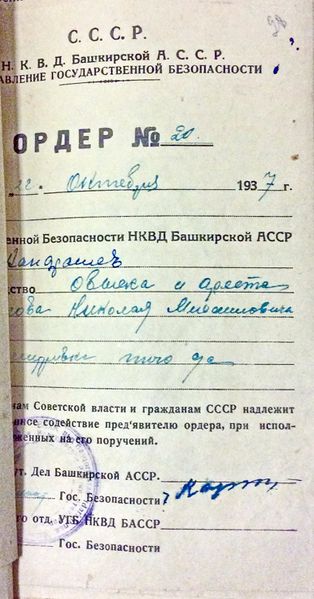 С. С. С. Р.
Н. К. В. Д. Башкирской А. С. С. Р.
АВЛЕНИЕ ГОСУДАРСТВЕННОЙ БЕЗОПАСНОСТИ
ОРДЕР № 20.
22. Октября 1937 г.
енной Безопасности НКВД Башкирской АССР
ство Обыска и ареста
ова Николая Михайловича
ам Советской власти и гражданам СССР надлежит
нное содействие пред'явителю ордера, при испол-
женных на его поручений.
ут. Дел Башкирской АССР.
Гос. Безопасности
го отд. УГБ НКВД БАССР
Гос. Безопасности